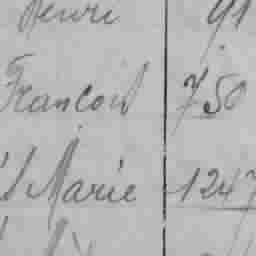 Henri 91
François 750
Marie 1247